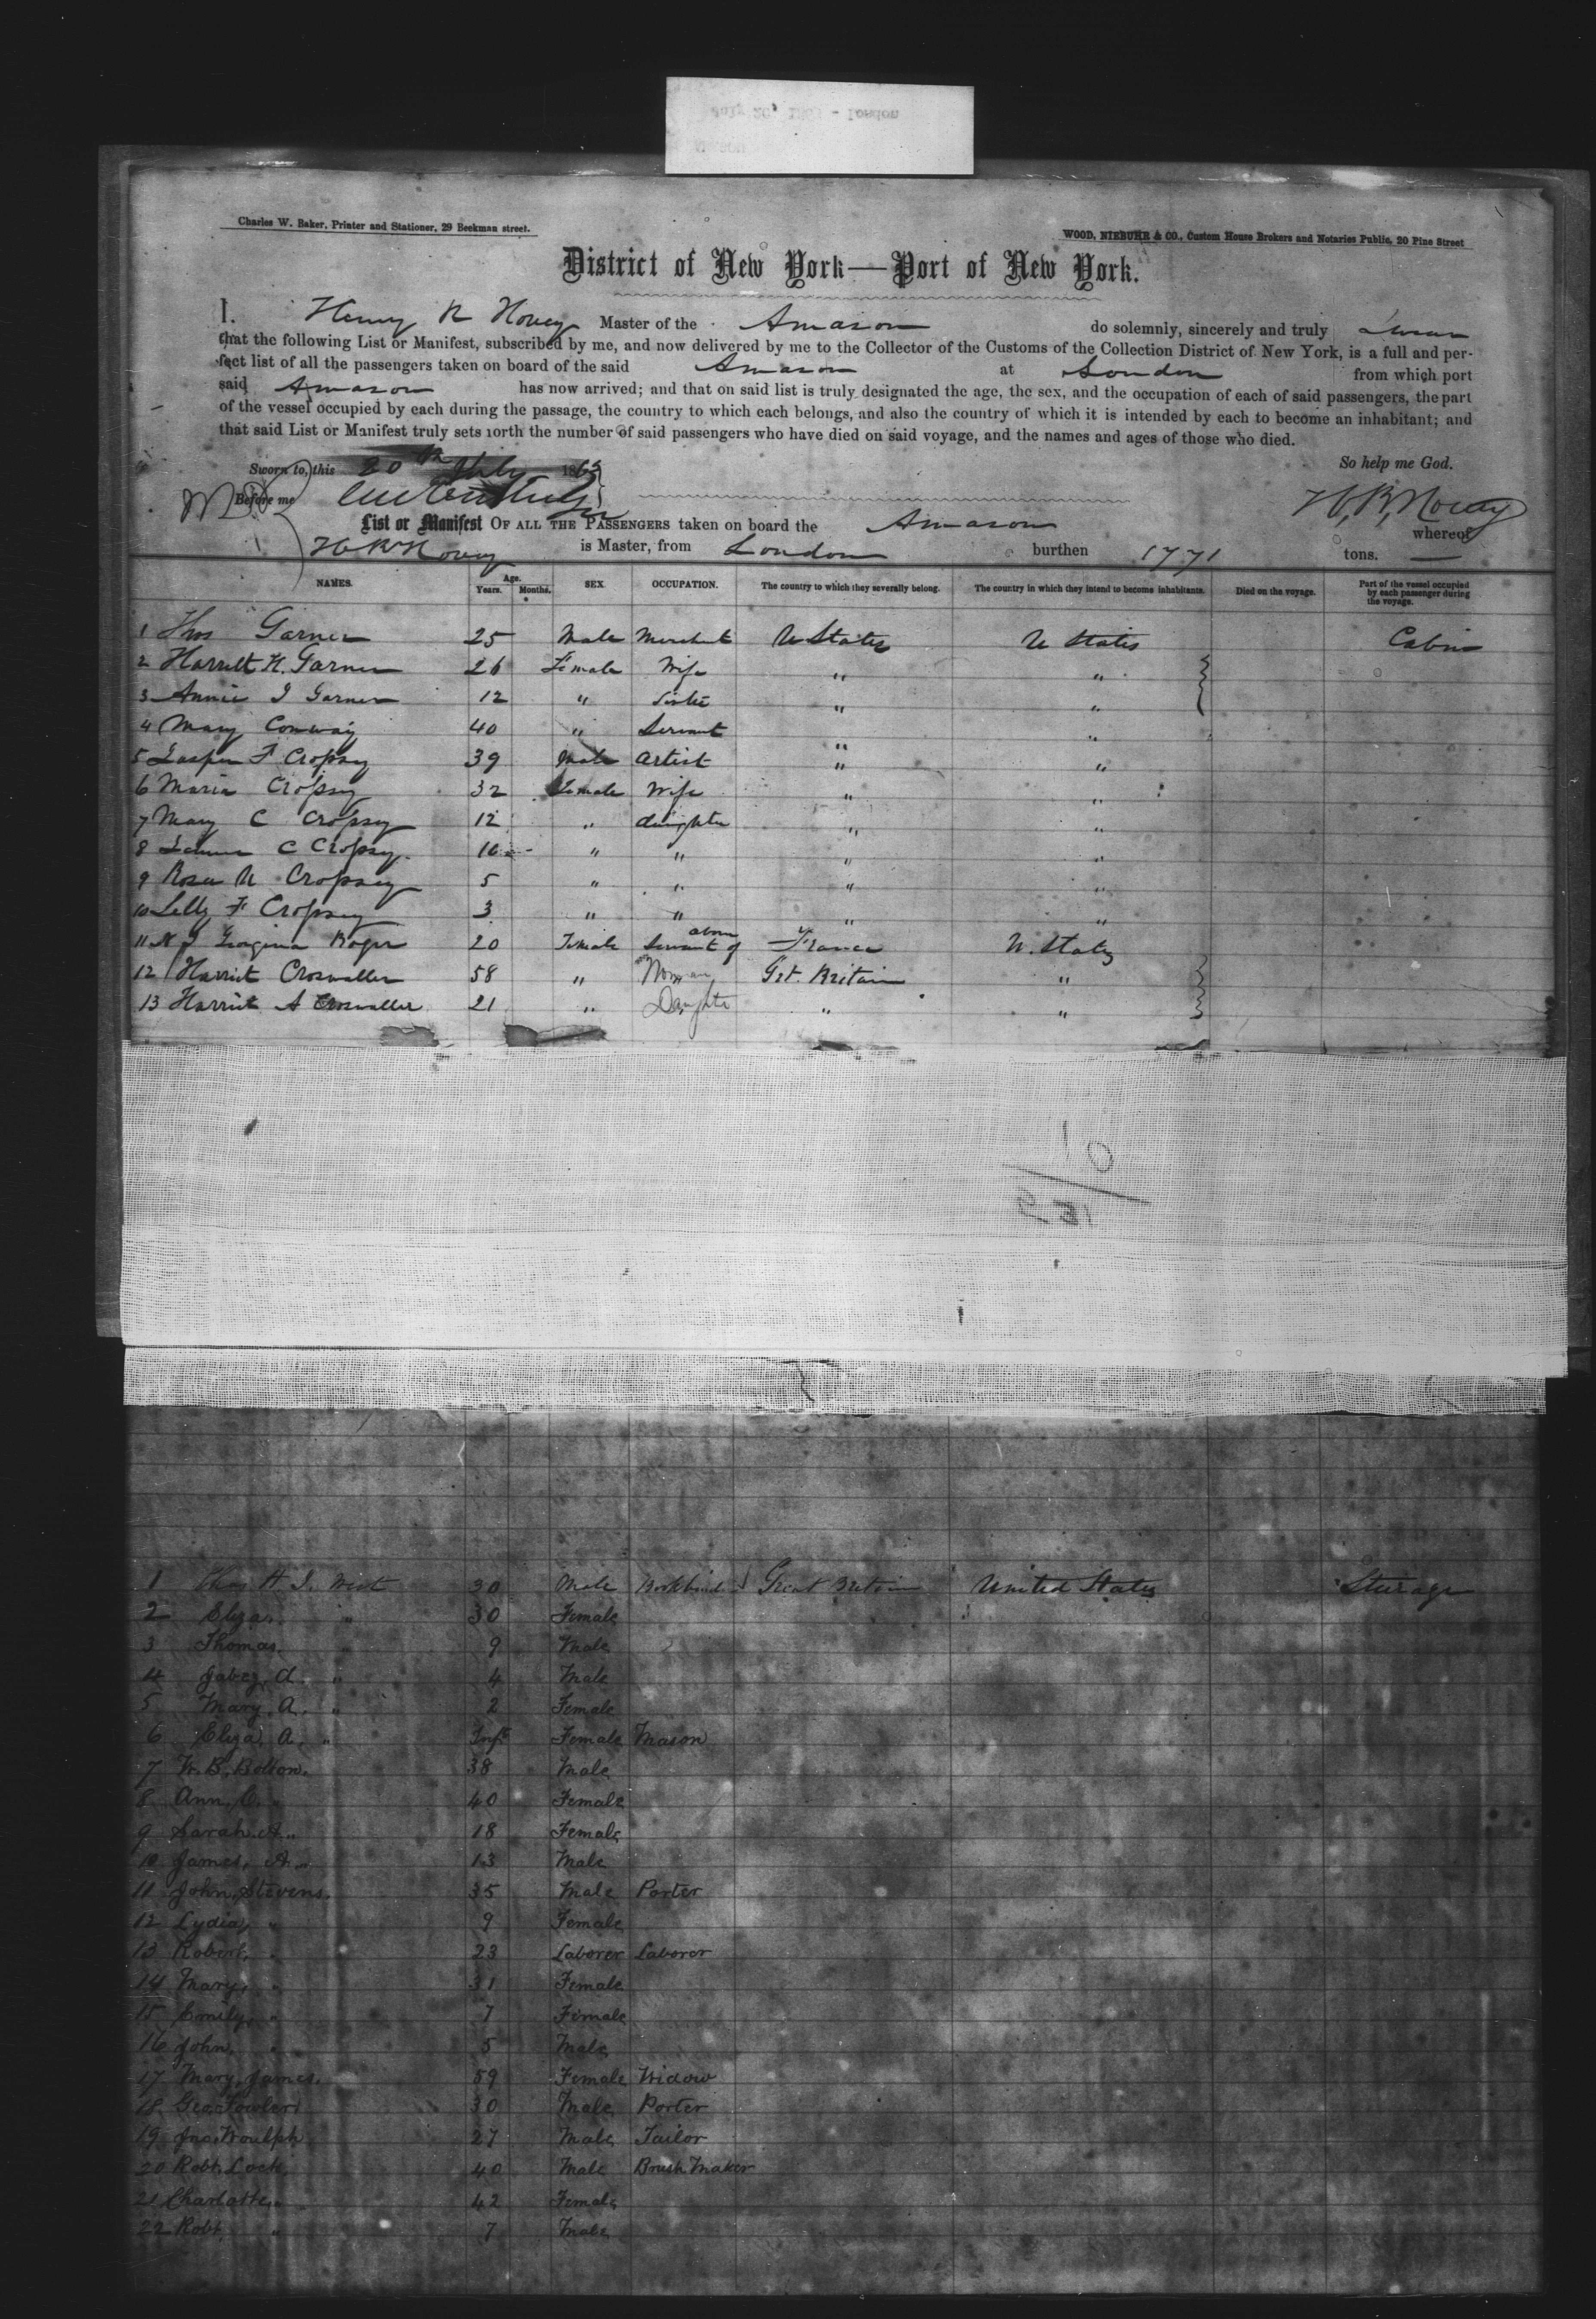 July 20, 1863 - London
Charles W. Baker, Printer and Stationer, 29 Beekman street.
WOOD, NIEBUHR & CO., Custom House Brokers and Notaries Public, 20 Pine Street
District of New York—Port of New York.
I. Henry R Hovey Master of the Amazon do solemnly, sincerely and truly Swear
that the following List or Manifest, subscribed by me, and now delivered by me to the Collector of the Customs of the Collection District of New York, is a full and per-
fect list of all the passengers taken on board of the said Amazon at London from which port
said Amazon has now arrived; and that on said list is truly designated the age, the sex, and the occupation of each of said passengers, the part
of the vessel occupied by each during the passage, the country to which each belongs, and also the country of which it is intended by each to become an inhabitant; and
that said List or Manifest truly sets forth the number of said passengers who have died on said voyage, and the names and ages of those who died.
Sworn to, this 20th July 1863 So help me God.
Before me H. R. Hovey
List or Manifest OF ALL THE PASSENGERS taken on board the Amazon whereof
H R Hovey is Master, from London burthen 1771 tons.
NAMES. Age. Years. Months. SEX. OCCUPATION. The country to which they severally belong. The country in which they intend to become inhabitants. Died on the voyage. Part of the vessel occupied by each passenger during the voyage.
1 Thos Garner 25 Male Merchant U States U States Cabin
2 Harriett H. Garner 26 Female Wife " "
3 Annie I Garner 12 " Sister " "
4 Mary Conway 40 " Servant " "
5 Jasper F Cropsey 39 Male Artist " "
6 Maria Cropsey 32 Female Wife " "
7 Mary C Cropsey 12 " daughter " "
8 C Cropsey 10 " " " "
9 Rosa U Cropsey 5 " " " "
10 Lilly F Cropsey 3 " " " "
11 Georgina Roger 20 Female Servant of above France U. States
12 Harriet Croswaller 58 " Woman Gt. Britain "
13 Harriet A Croswaller 21 " Daughter " "
1 Thos H. J. West 30 Male Bookbind Great Britain United States Steerage
2 Eliza. " 30 Female
3 Thomas. " 9 Male
4 Jabez. A. " 4 Male
5 Mary. A. " 2 Female
6 Eliza. A. " Inft Female Mason
7 W. B. Bolton. 38 Male
8 Ann. C. " 40 Female
9 Sarah. A. " 18 Female
10 James. A. " 13 Male
11 John. Stevens. 35 Male Porter
12 Lydia, " 9 Female
13 Robert, " 23 Laborer Laborer
14 Mary, " 31 Female
15 Emily, " 7 Female
16 John. " 5 Male
17 Mary. James. 59 Female Widow
18 Geo. Fowler 30 Male Porter
19 Jno. Woulph 27 Male Tailor
20 Robt. Lock 40 Male Brush Maker
21 Charlotte, " 42 Female
22 Robt. " 7 Male